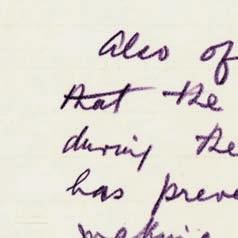 Also of
that the
during the
has preve
making